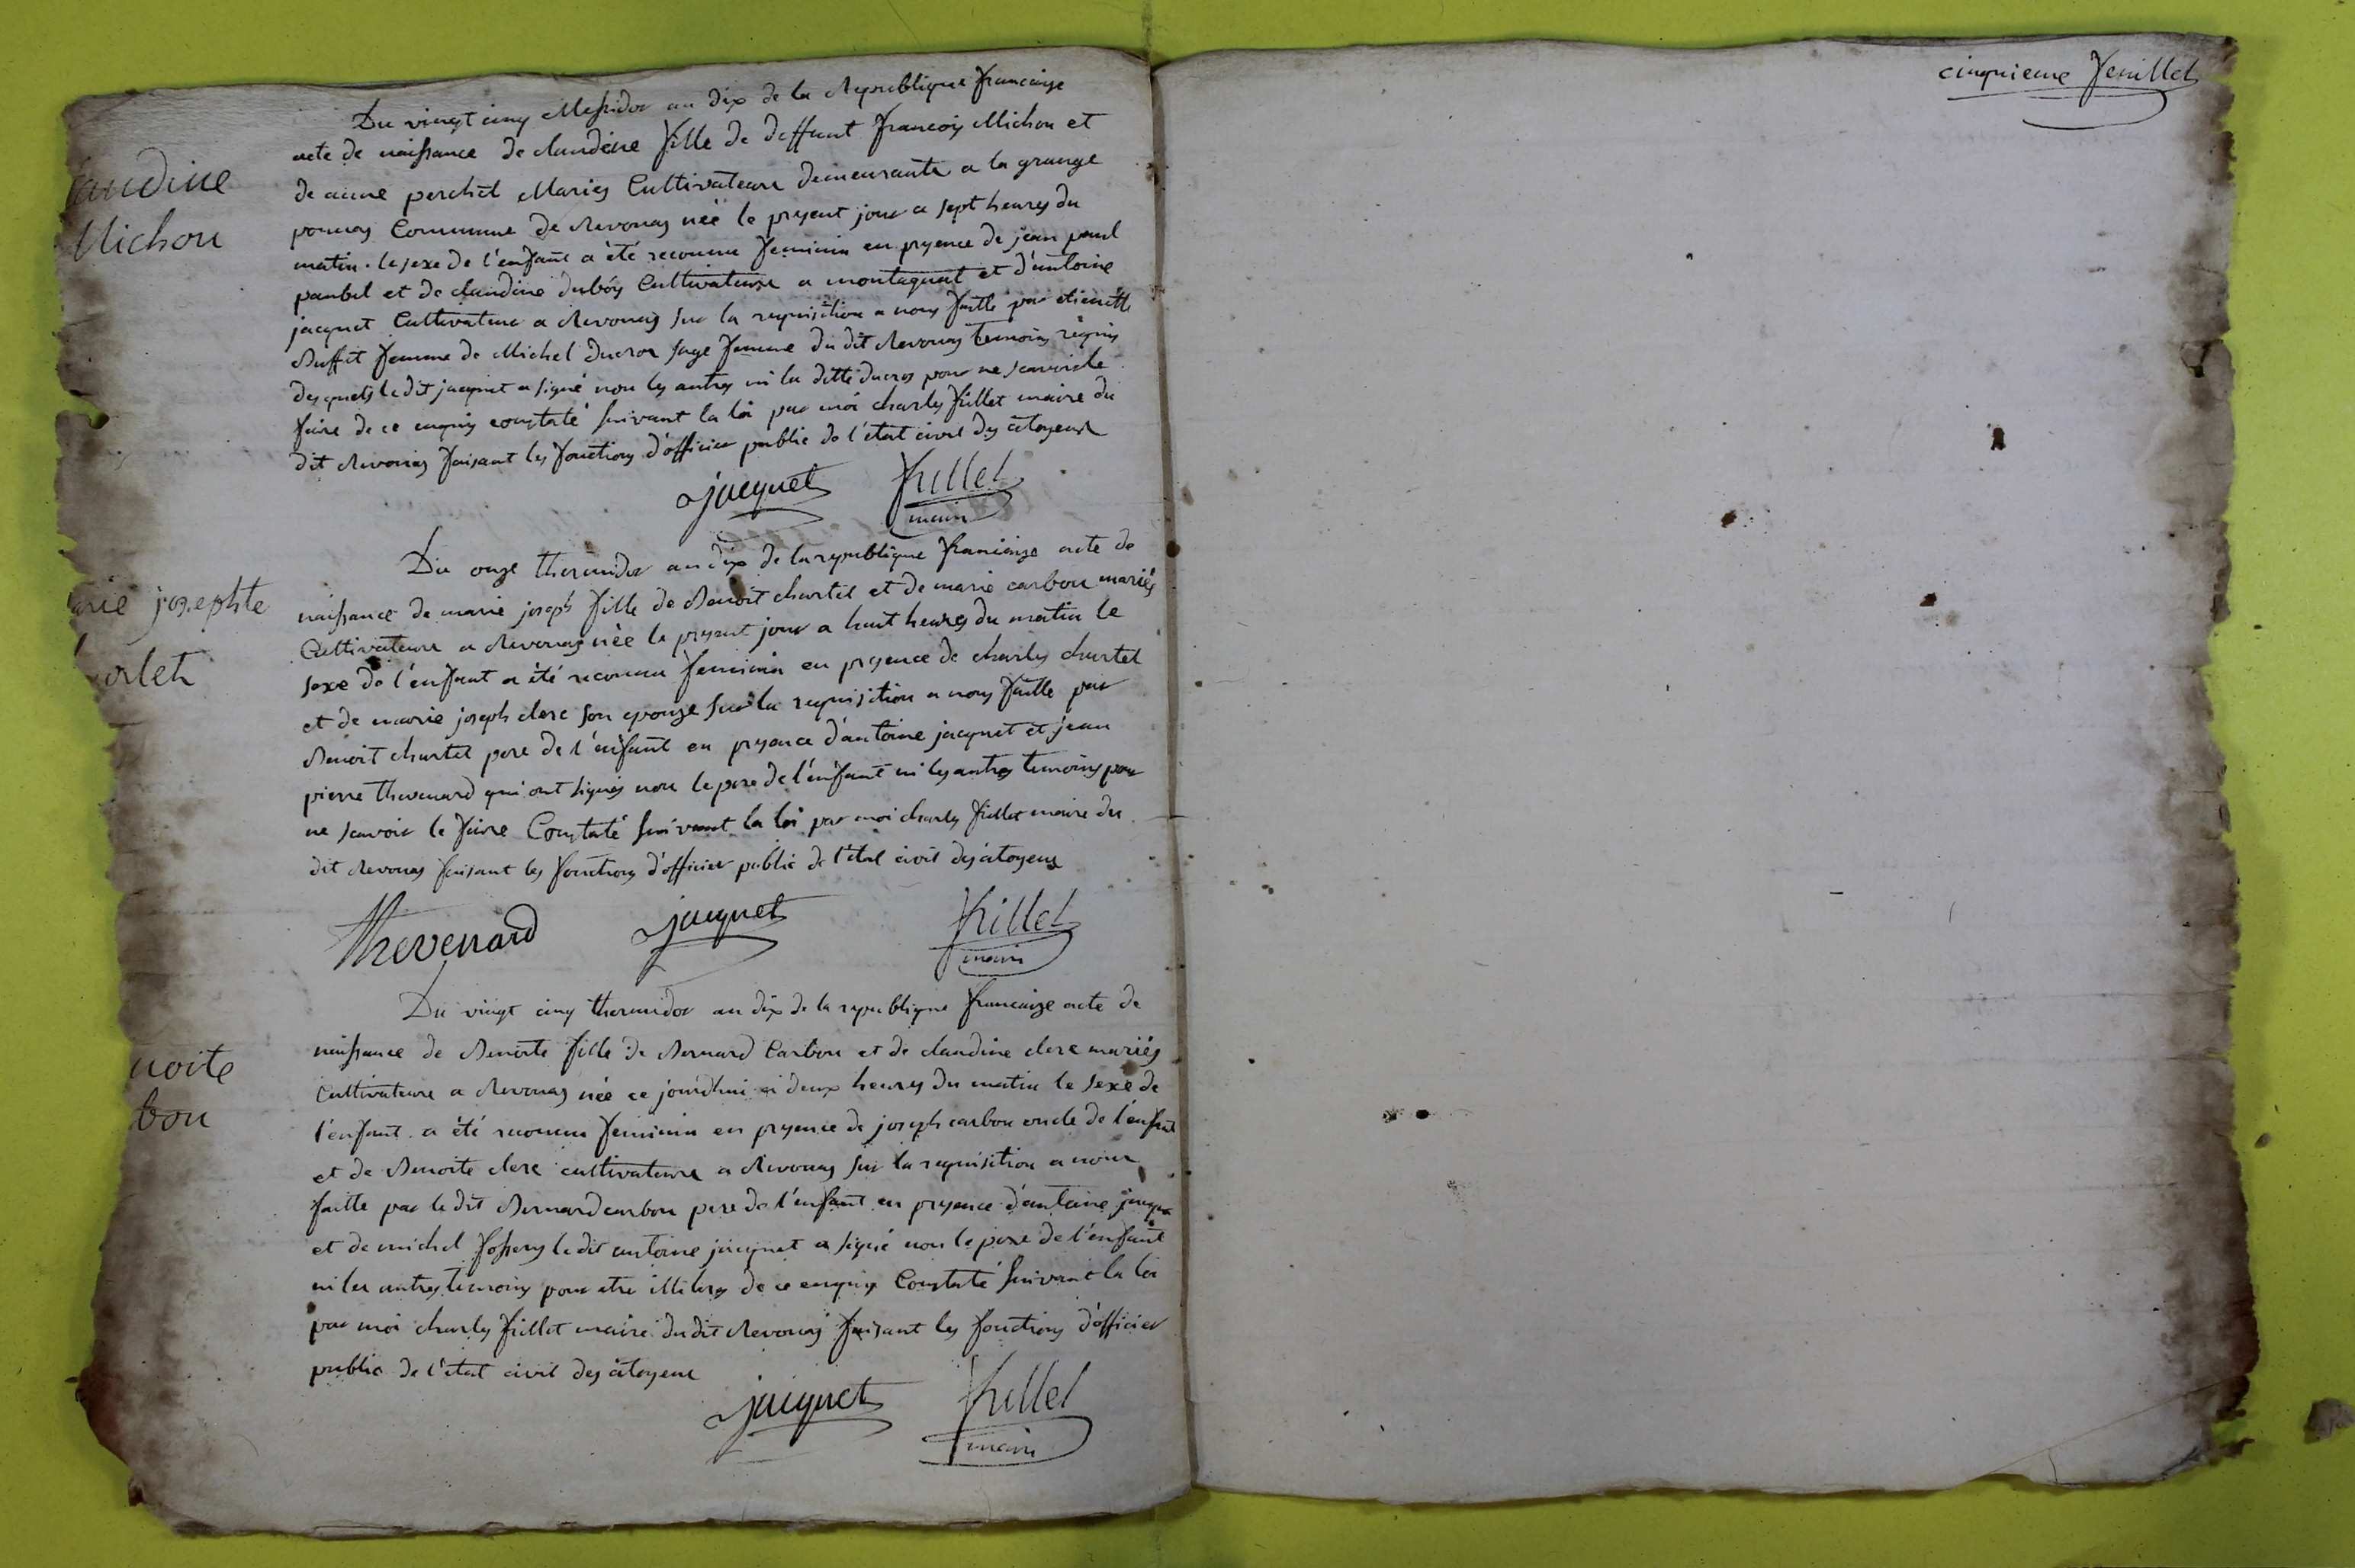 Du vingt cinq Messidor an dix de la Republique francaise
acte de naissance de claudine fille de deffunt francois Michon et
de anne perchet Maries Cultivateurs demeurants a la grange
Commune de Revonas née le present jour a sept heures du
matin. le sexe de l'enfant a été reconnu feminin en presence de jean paul
et de claudine dubois Cultivateurs a montaguat et d'antoine
jacquet Cultivateur a Revonas sur la requisition a nous faitte par etienette
Buffet femme de Michel ducros sage femme du dit Revonas temoins requis
desquels le dit jacquet a signé non les autres ni la ditte ducros pour ne scavoir le
faire de ce enquis constaté suivant la loi par moi charles fillet maire du
dit Revonas faisant les fonctions d'officier public de l'etat civil des citoyens
jacquet fillet
maire
audine
Michon
Du onze thermidor an dix de la republique francaise acte de
naissance de marie joseph fille de Benoit chartet et de marie carbon mariés
Cultivateurs a Revonas née le present jour a huit heures du matin le
sexe de l'enfant a été reconnu feminin en presence de charles chartet
et de marie joseph clerc son epouse sur la requisition a nous faitte par
Benoit chartet pere de l'enfant en presence d'antoine jacquet et jean
pierre thevenard qui ont signés non le pere de l'enfant ni les autres temoins pour
ne scavoir le faire Constaté suivant la loi par moi charles fillet maire du
dit Revonas faisant les fonctions d'officier public de l'etat civil des citoyens
Thevenard jacquet fillet
maire
rie josephte
Du vingt cinq thermidor an dix de la republique francaise acte de
naissance de Benoite fille de Bernard Carbon et de claudine clerc mariés
Cultivateurs a Revonas née ce jourdhui a deux heures du matin le sexe de
l'enfant a été reconnu feminin en presence de joseph carbon oncle de l'enfant
et de Benoite clerc cultivateurs a Revonas sur la requisition a nous
faitte par le dit Bernard carbon pere de l'enfant en presence d'antoine jacque
et de michel le dit antoine jacquet a signé non le pere de l'enfant
ni les autres temoins pour etre illiteres de ce enquis Constaté suivant la loi
par moi charles fillet maire du dit Revonas faisant les fonctions d'officier
public de l'etat civil des citoyens
jacquet fillet
maire
noite
bon
cinquieme feuillet